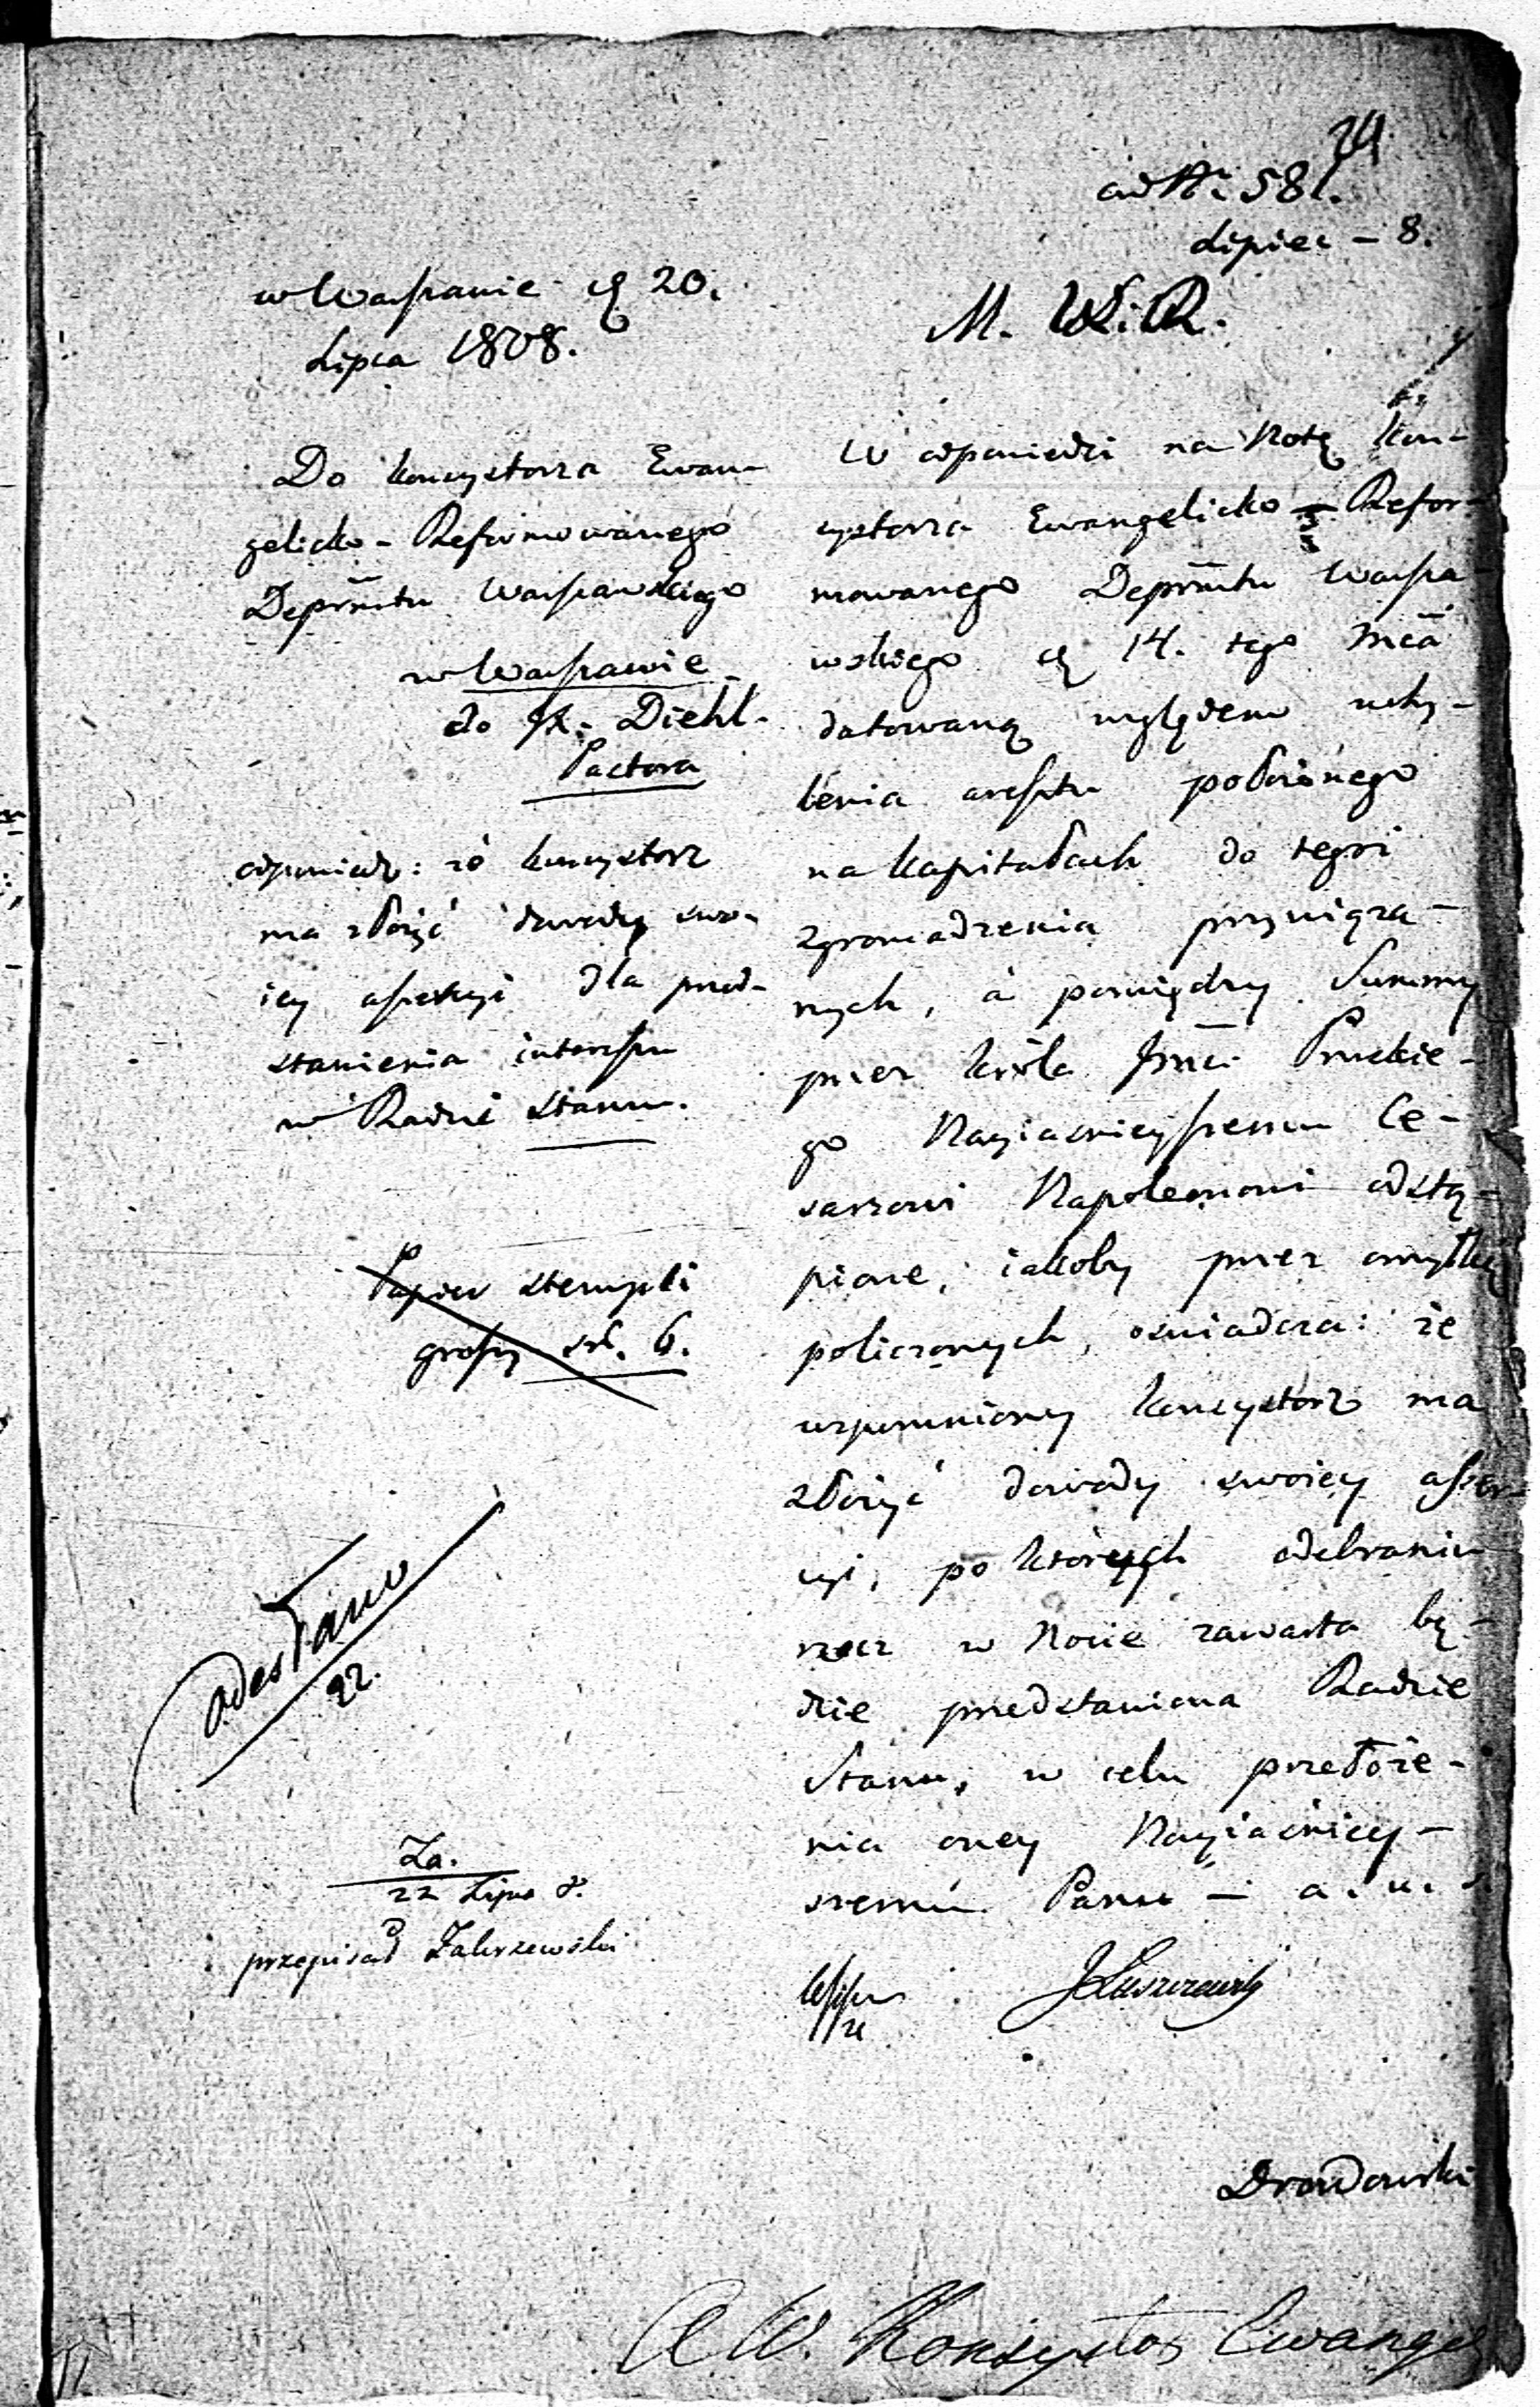 24
ad Nr 581.
Lipiec - 8.
w Warszawie d. 20.
Lipca 1808.
M. W. R.
Do konsystorza Ewan-
gelicko - Reformowanego
Deprtmtu Warszawskiego
w Warszawie
do JX. Diehl.
Pastora
odpowiedź: że konsystorz
ma złożyć dowody swo-
iey assercyi dla przed-
stawienia interessu
w Radzie Stanu.
Papier stempli
groszy srb. 6.
odesłano
22.
Za.
22 Lipca 8.
przepisał Zakrzewski
W odpowiedzi na Notę kon-
systorza Ewangelicko - Refor-
mowanego Deprtmtu Warsza-
wskiego d. 14. tego mca
datowaną względem uchy-
lenia aresztu położonego
na kapitałach do tegoż
zgromadzenia przywiąza-
nych, a pomiędzy Summy
przez króla Jmci Pruskie-
go Nayiaśnieyszemu Ce-
sarzowi Napoleonowi odstą-
pione, iakoby przez omyłkę
policzonych, oświadcza: że
wspomniony konsystorz ma
złożyć dowody swoiey asser-
cyi, po których odebraniu
rzecz w Nocie zawarta bę-
dzie przedstawiona Radzie
Stanu, w celu przełoże-
nia oney Nayiaśniey-
szemu Panu -
JŁuszczewski
Drozdowski
A W. Konsystor Ewangel